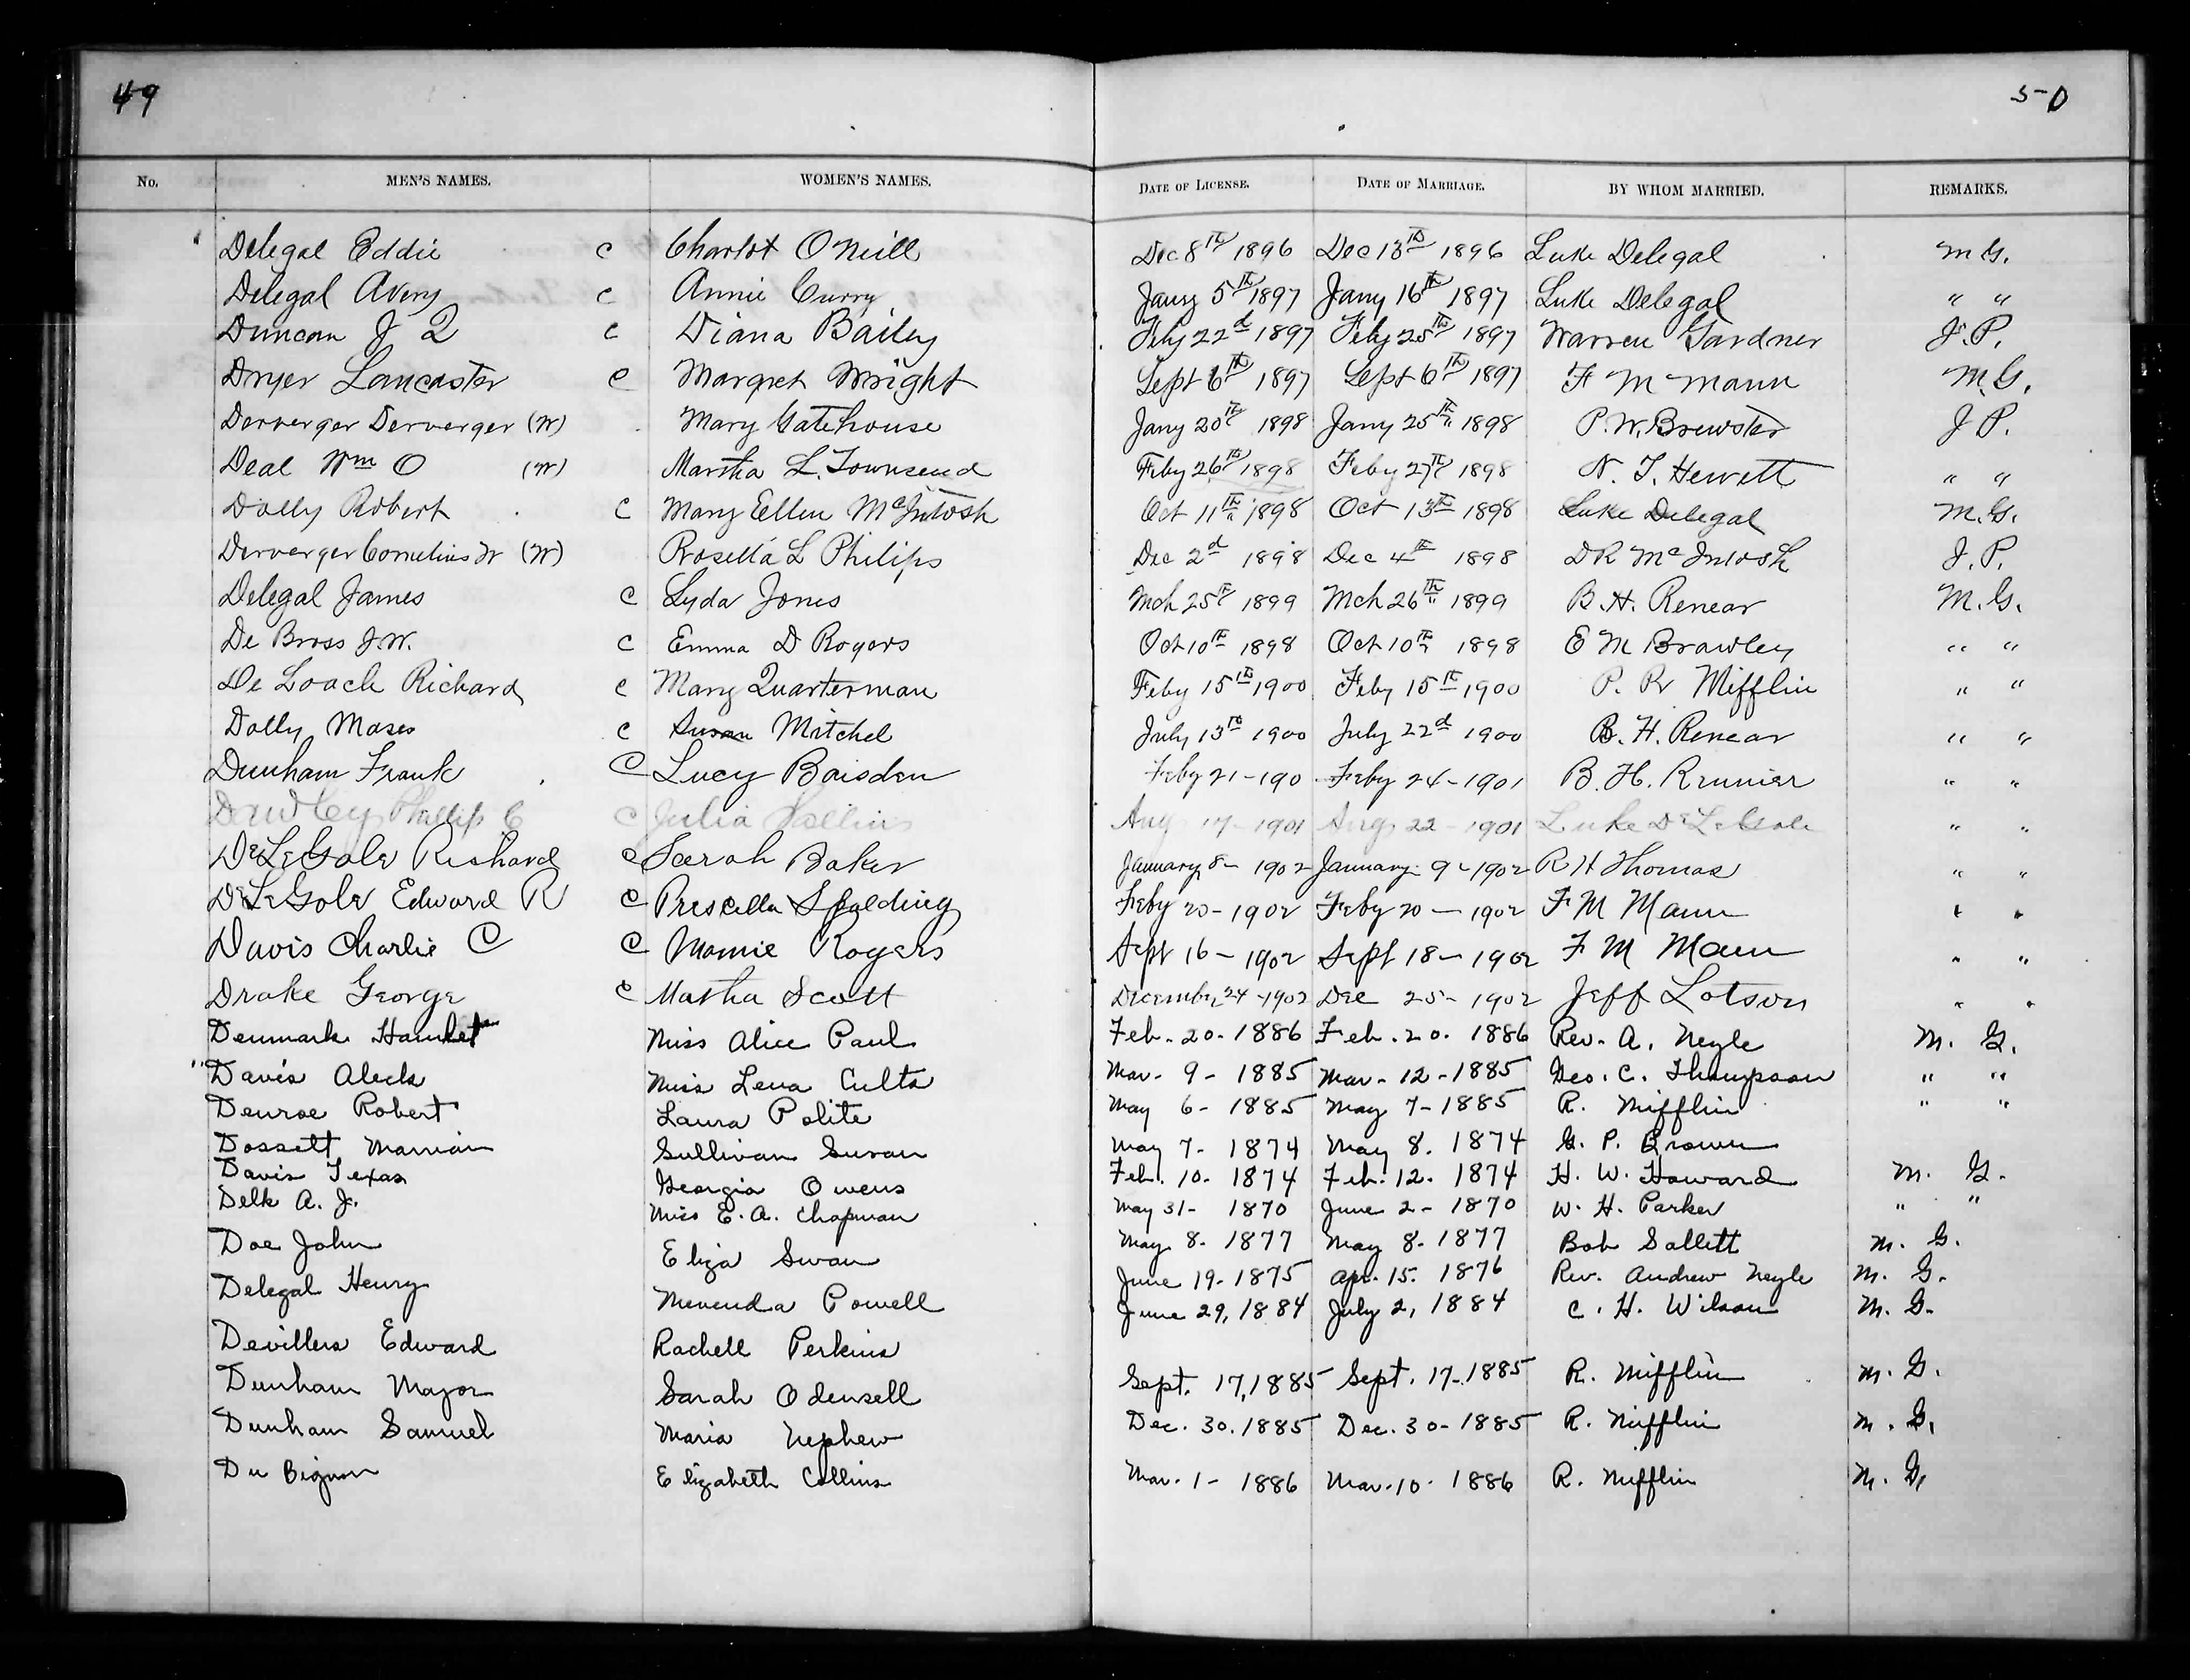 49
5-0
No. MEN'S NAMES. WOMEN'S NAMES. DATE OF LICENSE. DATE OF MARRIAGE. BY WHOM MARRIED. REMARKS.
Delegal Eddie c Charlot O Neill Dec 8th 1896 Dec 13th 1896 Luke Delegal M G.
Delegal Avery c Annie Curry Jany 5th 1897 Jany 16th 1897 Luke Delegal " "
Duncan J Q c Diana Bailey Feby 22d 1897 Feby 25th 1897 Warren Gardner J. P.
Dryer Lancaster c Margret Wright Sept 6th 1897 Sept 6th 1897 F M Mann M. G.
Derverger Derverger (W) Mary Gatehouse Jany 20th 1898 Jany 25th 1898 P. W. Brewster J P.
Deal Wm O (W) Martha L. Townsend Feby 26th 1898 Feby 27th 1898 N. T. Hewett " "
Dolly Robert c Mary Ellen McIntosh Oct 11th 1898 Oct 13th 1898 Luke Delegal M. G.
Derverger Cornelius Jr (W) Rosella L Philips Dec 2d 1898 Dec 4th 1898 D R McIntosh J. P.
Delegal James c Lyda Jones Mch 25th 1899 Mch 26th 1899 B. H. Renear M. G.
De Bross J. W. c Emma D Rogers Oct 10th 1898 Oct 10th 1898 E M Brawley " "
De Loach Richard c Mary Quarterman Feby 15th 1900 Feby 15th 1900 P. R Mifflin " "
Dolly Moses c Susan Mitchel July 13th 1900 July 22d 1900 B. H. Renear " "
Dunham Frank C Lucy Baisden Feby 21-190 Feby 24-1901 B. H. Runnier " "
Phillip C C Julia Aug 17-1901 Aug 22-1901 Luke DeLeGale " "
DeLeGale Richard c Sarah Baker January 8-1902 January 9-1902 R H Thomas " "
DeLeGale Edward R C Prescilla Spalding Feby 20-1902 Feby 20-1902 F M Mann " "
Davis Charlie C C Mamie Rogers Sept 16-1902 Sept 18-1902 F M Mann " "
Drake George c Matha Scott December 24-1902 Dec 25-1902 Jeff Lotson " "
Denmark Miss Alice Paul Feb. 20. 1886 Feb. 20. 1886 Rev. A. Neyle M. G.
" Davis Aleck Miss Lena Cults Mar- 9- 1885 Mar- 12-1885 Geo. C. Thompson " "
Denroe Robert Laura Polite May 6- 1885 May 7-1885 R. Mifflin " "
Dossett Marrian Sullivan Susan May 7- 1874 May 8. 1874 G. P. Brown
Davis Texas Georgia Owens Feb. 10. 1874 Feb. 12. 1874 H. W. Howard M. G.
Delk A. J. Miss E. A. Chapman May 31- 1870 June 2- 1870 W. H. Parker " "
Doe John Eliza Swan May 8. 1877 May 8. 1877 Bob Sallett M. G.
June 19. 1875 Apr. 15. 1876 Rev. Andrew Neyle M. G.
Delegal Henry Menenda Powell June 29, 1884 July 2, 1884 C. H. Wilson M. G.
Devillers Edward Rachell Perkins
Dunham Major Sarah Odensell Sept. 17, 1885 Sept. 17-1885 R. Mifflin M. G.
Dunham Samuel Maria Nephew Dec. 30. 1885 Dec. 30-1885 R. Mifflin M. G.
Du Bignon Elizabeth Collins Mar. 1- 1886 Mar. 10- 1886 R. Mifflin M. G.